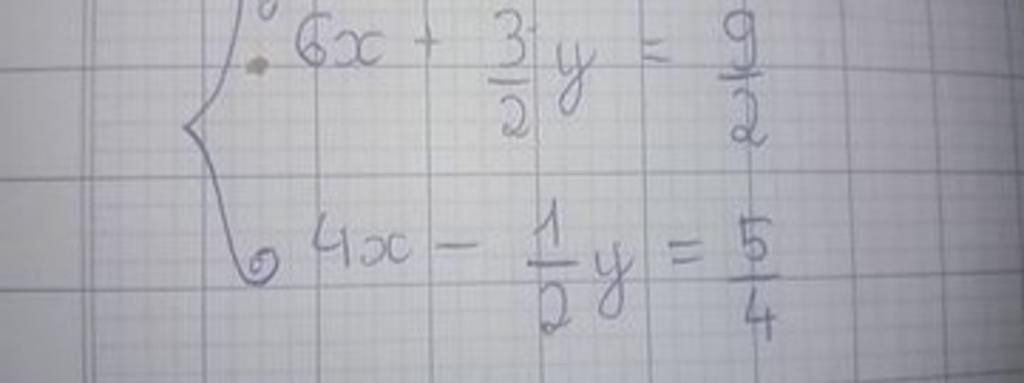 6x + 3/2 y = 9/2
4x - 1/2 y = 5/4